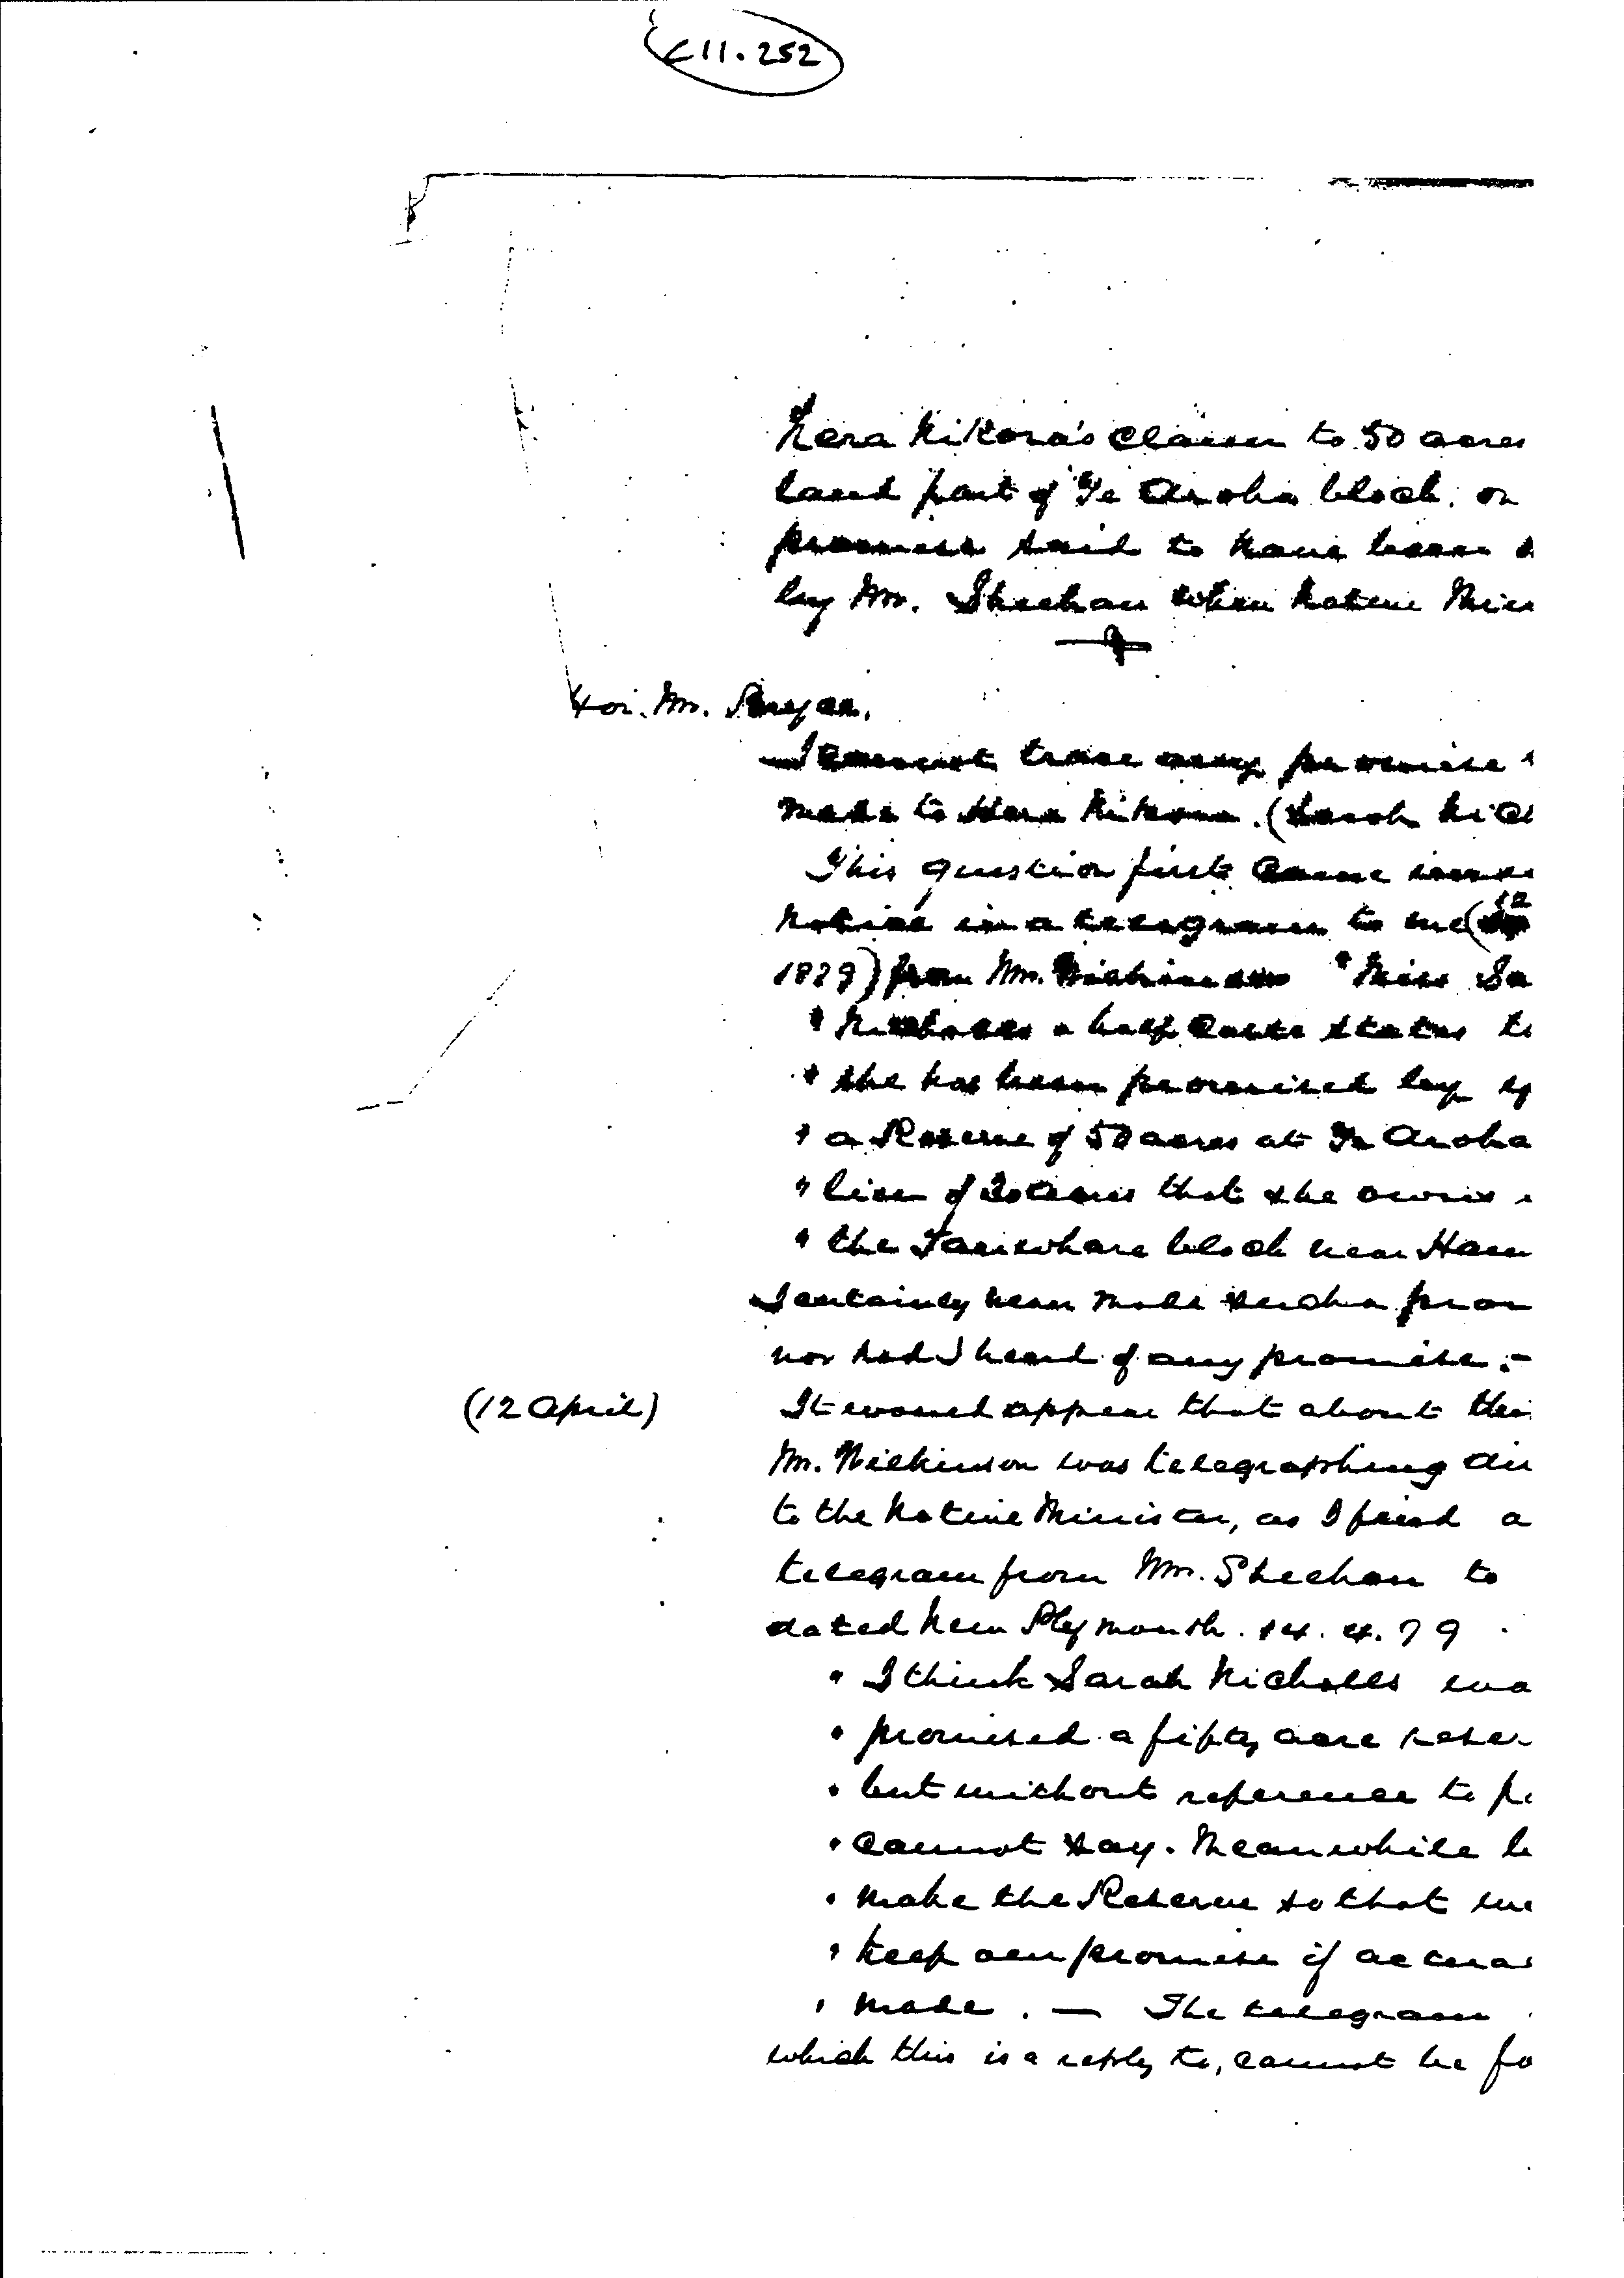 C11.252
Hera Nikora's claim to 50 acres
land part of Te Aroha block. on
promise said to have been
by Mr. Sheehan when Native
Hon. Mr. Bryce.
I cannot trace any promise
made to Hera Nikora. (Sarah
This question first came
notice in a telegram to me (12
1879) from Mr. Wilkinson "Miss
" Nicholls a half caste states
" she has been promised by
" a Reserve of 50 acres at Te Aroha
" lieu of acres that she owns
" the Tairwhare block near
I certainly never made such a
nor had I heard of any promise. -
(12 April) It would appear that about
Mr. Wilkinson was telegraphing
to the Native Minister, as I find a
telegram from Mr. Sheehan to
dated New Plymouth. 14. 4. 79
" I think Sarah Nicholls
" promised a fifty acre
" but without reference to
" cannot say. Meanwhile
" make the Reserve so that
" keep our promise if
" made. — The telegram
which this is a reply to, cannot be fo